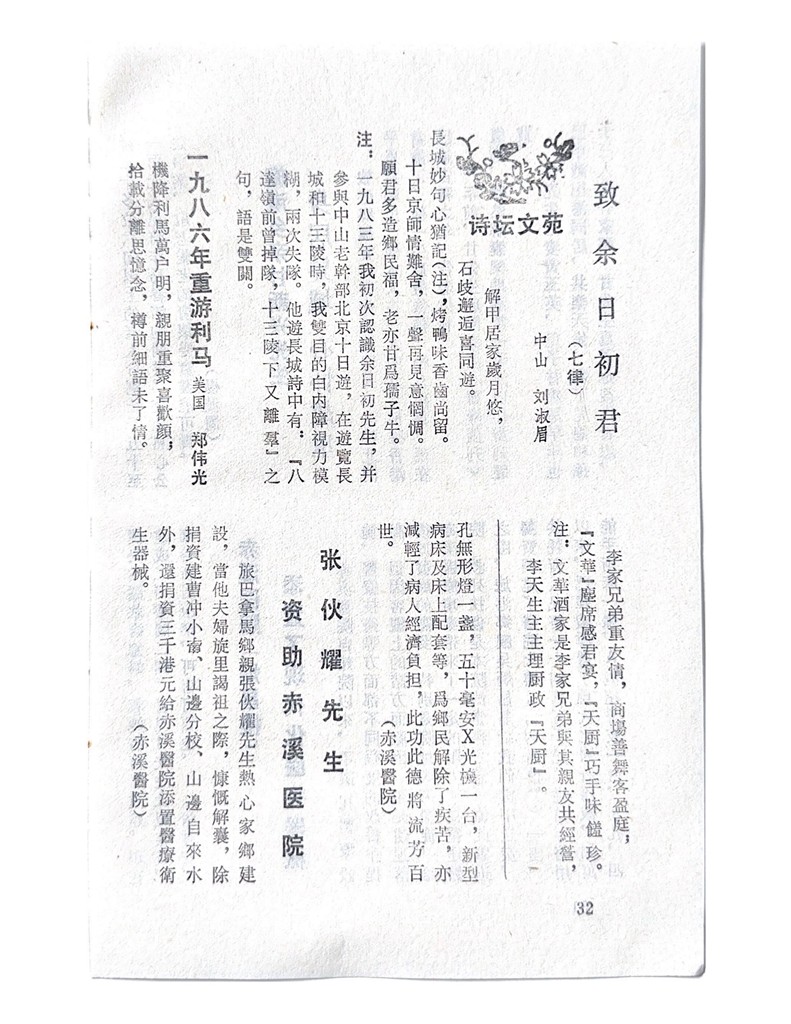 致余日初君
（七律）
中山　刘淑眉
诗坛文苑
解甲居家歲月悠，
石歧邂逅喜同遊。
長城妙句心猶記（注），烤鴨味香齒尚留。
十日京師情難舍，一聲再見意惆惆。
願君多造鄉民福，老亦甘爲孺子牛。
注：一九八三年我初次認識余日初先生，并
參與中山老幹部北京十日遊，在遊覽長
城和十三陵時，我雙目的白内障視力模
湖，兩次失隊。他遊長城詩中有：『八
達嶺前曾掉隊，十三陵下又離羣』之
句，語是雙關。
一九八六年重游利马　美国　郑伟光
機降利馬萬户明，親朋重聚喜歡顔，
拾載分離思憶念，樽前細語未了情。
李家兄弟重友情，商場善舞客盈庭；
『文華』塵席感君宴，『天厨』巧手味饈珍。
注：文華酒家是李家兄弟與其親友共經營，
李天生主主理厨政『天厨』。
孔無形燈一盞，五十毫安X光機一台，新型
病床及床上配套等，爲鄉民解除了疾苦，亦
減輕了病人經濟負担，此功此德將流芳百
世。
（赤溪醫院）
张伙耀先生
资助赤溪医院
旅巴拿馬鄉親張伙耀先生熱心家鄉建
設，當他夫婦旋里謁祖之際，慷慨解囊，除
捐資建曹冲小斋、山邊分校、山邊自來水
外，還捐資三千港元給赤溪醫院添置醫療衛
生器械。
（赤溪醫院）
32